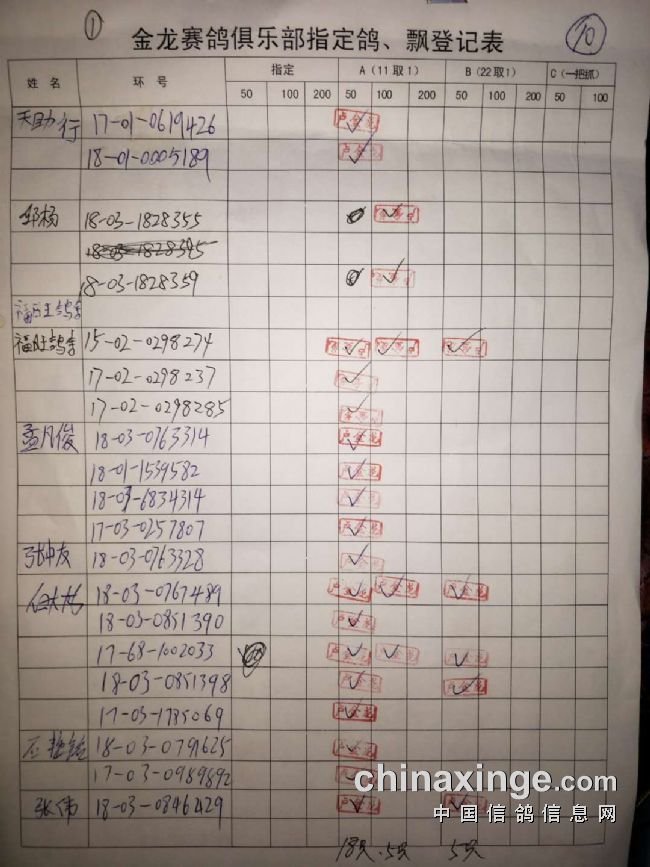 ① ⑩
金龙赛鸽俱乐部指定鸽、飘登记表
姓名 环号 指定 A（11取1） B（22取1） C（一把抓）
50 100 200 50 100 200 50 100 200 50 100
天助行 17-01-0619426
18-01-0005189
邹杨 18-03-1828355
18-03-1828359
福旺鸽舍 15-02-0298274
17-02-0298237
17-02-0298285
孟凡俊 18-03-0763314
18-01-1539582
6834314
17-03-0257807
张中友 18-03-0763328
18-03-0767489
18-03-0851390
17-68-1002033
18-03-0851398
17-03-1785069
18-03-0791625
17-03-0989892
张伟 18-03-0846429
18只 5只 5只
chinaxinge.com
中国信鸽信息网